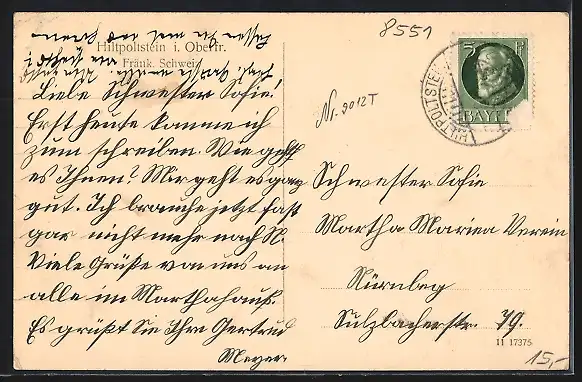 Hiltpoltstein i. Oberfr.
Fränk. Schweiz
Liebe Schwester Sofie!
Erst heute komme ich
zum schreiben. Wie geht
es Ihnen? Mir geht es ganz
gut. Ich brauche jetzt fast
gar nicht mehr nach N.
Viele Grüße von uns an
alle im Marthahaus.
Es grüßt Sie Ihre Gertrud
Meyer
8551
Nr. 9012T
5 Pf
BAYERN
HILTPOLTSTEIN
Schwester Sofie
Martha Maria Verein
Nürnbeg
Sulzbacherstr. 79.
11 17375
15,-